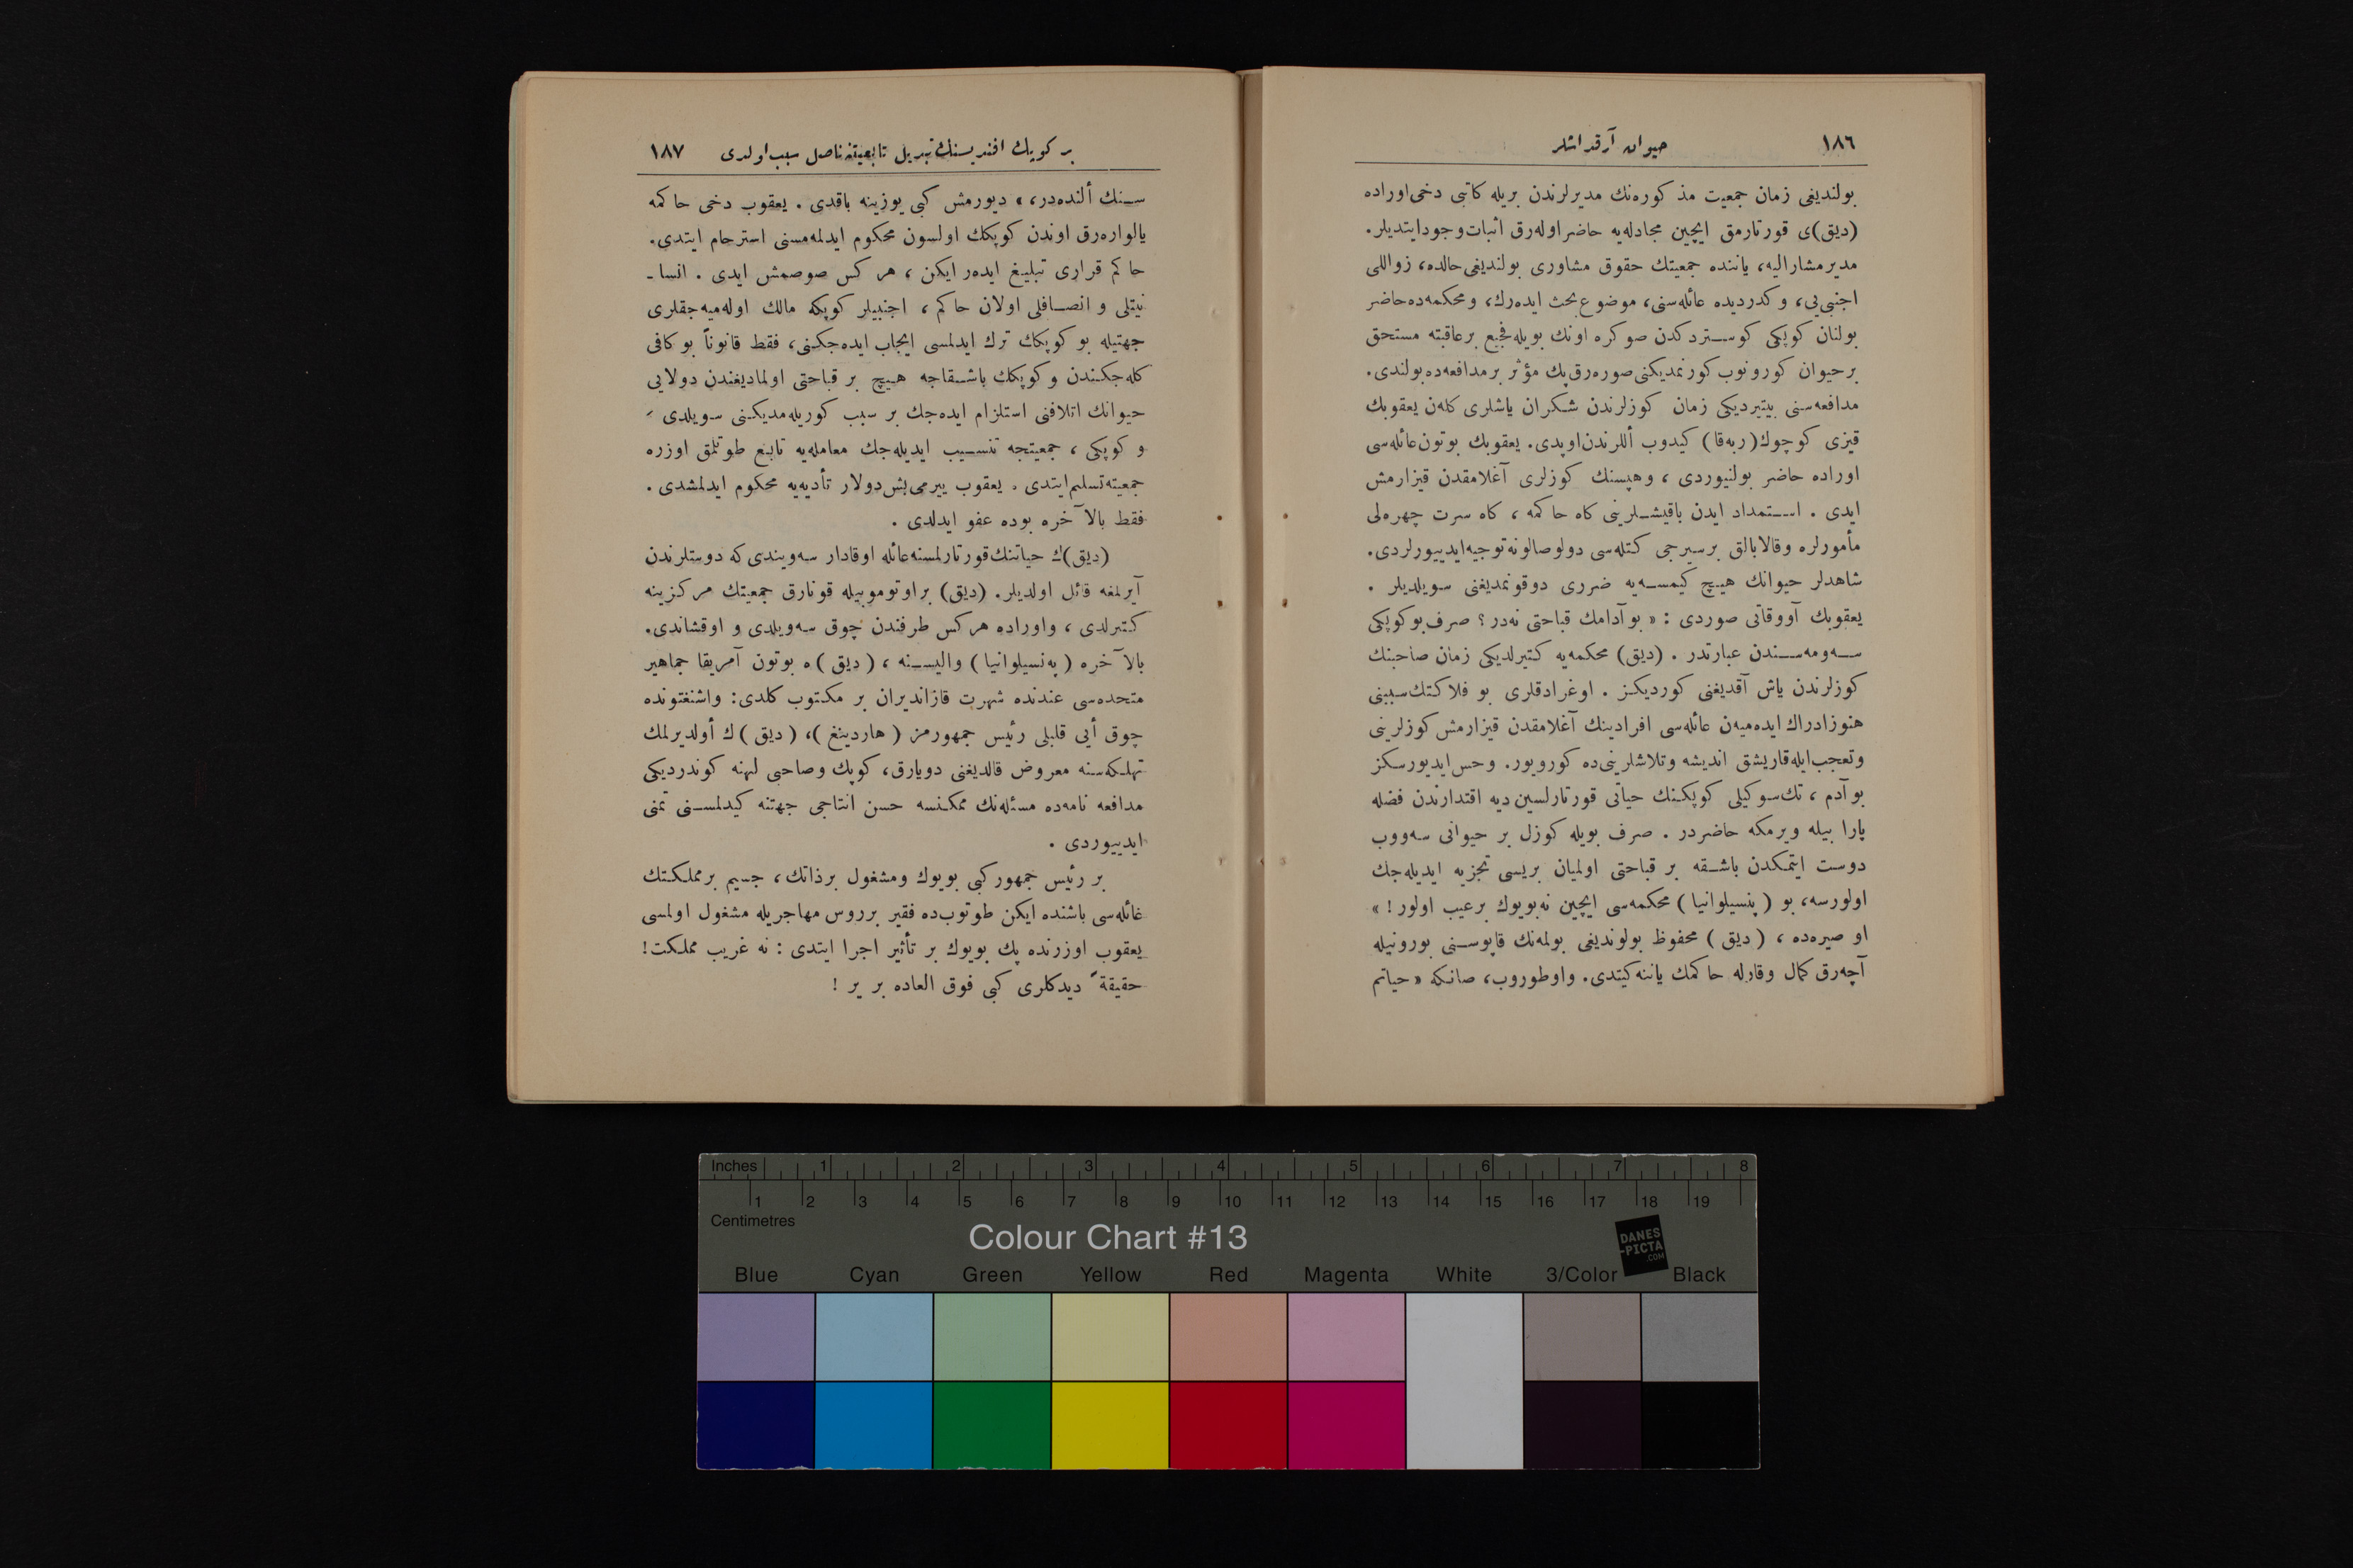 ١٨٦
حيوان آرقداشلر
بولنديغى زمان جمعيت مذكوره‌نك مديرلرندن بريله كاتبى دخى اوراده
(ديق)ى قورتارمق ايچين مجادله‌يه حاضر اوله‌رق اثبات وجود ايتديلر.
مدير مشاراليه، ياننده جمعيتك حقوق مشاورى بولنديغى حالده، زواللى
اجنبى‌يى، و كدرديده عائله‌سنى، موضوع بحث ايده‌رك، و محكمه‌ده حاضر
بولنان كوپكى كوستردكدن صوكره اونك بويله فجيع بر عاقبته مستحق
بر حيوان كورونوب كورنمديكنى صوره‌رق پك مؤثر بر مدافعه‌ده بولندى.
مدافعه‌سنى بيتيرديكى زمان كوزلرندن شكران ياشلرى كلن يعقوبك
قيزى كوچوك (ربه‌قا) كيدوب أللرندن اوپدى. يعقوبك بوتون عائله‌سى
اوراده حاضر بولنيوردى ، و هپسنك كوزلرى آغلامقدن قيزارمش
ايدى . استمداد ايدن باقيشلرينى كاه حاكمه ، كاه سرت چهره‌لى
مأمورلره و قالابالق بر سيرجى كتله‌سى دولو صالونه توجيه ايدييورلردى.
شاهدلر حيوانك هيچ كيمسه‌يه ضررى دوقونمديغنى سويلديلر .
يعقوبك آووقاتى صوردى : « بو آدامك قباحتى نه‌در؟ صرف بو كوپكى
سه‌ومه‌سندن عبارتدر . (ديق) محكمه‌يه كتيرلديكى زمان صاحبنك
كوزلرندن ياش آقديغنى كورديكز . اوغرادقلرى بو فلاكتك سببنى
هنوز ادراك ايده‌ميه‌ن عائله‌سى افرادينك آغلامقدن قيزارمش كوزلرينى
و تعجب ايله قاريشق انديشه و تلاشلرينى ده كورويور. و حس ايديورسكز
بو آدم ، تك سوكيلى كوپكنك حياتى قورتارلسين ديه اقتدارندن فضله
پارا بيله ويرمكه حاضردر . صرف بويله كوزل بر حيوانى سه‌ووب
دوست ايتمكدن باشقه بر قباحتى اولميان بريسى تجزيه ايديله‌جك
اولورسه، بو ( پنسيلوانيا ) محكمه‌سى ايچين نه بويوك بر عيب اولور! »
او صيره‌ده ، ( ديق ) محفوظ بولونديغى بولمه‌نك قاپوسنى بورونيله
آچه‌رق كمال وقارله حاكمك ياننه كيتدى. و اوطوروب، صانكه « حياتم
بر كوپك افنديسنك تبديل تابعيتنه ناصل سبب اولدى
١٨٧
سنك ألنده‌در، » ديورمش كبى يوزينه باقدى . يعقوب دخى حاكمه
يالواره‌رق اوندن كوپكك اولسون محكوم ايدلمه‌مسنى استرحام ايتدى.
حاكم قرارى تبليغ ايده‌ر ايكن ، هر كس صوصمش ايدى . انسا-
نيتلى و انصافلى اولان حاكم ، اجنبيلر كوپكه مالك اوله‌ميه‌جقلرى
جهتيله بو كوپكك ترك ايدلمسى ايجاب ايده‌جكنى، فقط قانوناً بو كافى
كله‌جكندن و كوپكك باشقاجه هيچ بر قباحتى اولماديغندن دولايى
حيوانك اتلافنى استلزام ايده‌جك بر سبب كوريله‌مديكنى سويلدى ،
و كوپكى ، جمعيتجه تنسيب ايديله‌جك معامله‌يه تابع طوتلمق اوزره
جمعيته تسليم ايتدى . يعقوب ييرمى بش دولار تأديه‌يه محكوم ايدلمشدى .
فقط بالآخره بوده عفو ايدلدى .
(ديق)ك حياتنك قورتارلمسنه عائله اوقادار سه‌ويندى كه دوستلرندن
آيرلمغه قائل اولديلر. (ديق) بر اوتوموبيله قونارق جمعيتك مركزينه
كتيرلدى ، و اوراده هر كس طرفندن چوق سه‌ويلدى و اوقشاندى.
بالآخره ( په‌نسيلوانيا ) واليسنه ، ( ديق )ه بوتون آمريقا جماهير
متحده‌سى عندنده شهرت قازانديران بر مكتوب كلدى: واشنغتونده
چوق أيى قلبلى رئيس جمهورمز ( هاردينغ )، ( ديق )ك أولديرلمك
تهلكه‌سنه معروض قالديغنى دويارق، كوپك و صاحبى لهنه كوندرديكى
مدافعه نامه‌ده مسئله‌نك ممكنسه حسن انتاجى جهتنه كيدلمسنى تمنى
ايدييوردى .
بر رئيس جمهور كبى بويوك و مشغول بر ذاتك ، جسيم بر مملكتك
غائله‌سى باشنده ايكن طوتوب ده فقير بر روس مهاجريله مشغول اولمسى
يعقوب اوزرنده پك بويوك بر تأثير اجرا ايتدى : نه غريب مملكت!
حقيقةً ديدكلرى كبى فوق العاده بر ير !
Inches 1 2 3 4 5 6 7 8
1 2 3 4 5 6 7 8 9 10 11 12 13 14 15 16 17 18 19
Centimetres
Colour Chart #13
DANES
-PICTA
.COM
Blue Cyan Green Yellow Red Magenta White 3/Color Black